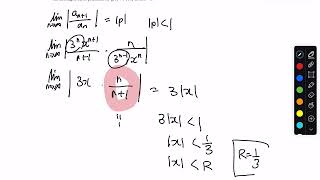 lim n→∞ |a_{n+1}/a_n| = |p| |p| < 1
lim n→∞ |3^n x^{n+1}/(n+1) · n/(3^{n-1} x^n)|
lim n→∞ |3x · n/(n+1)| = 3|x|
3|x| < 1
|x| < 1/3
|x| < R
R = 1/3